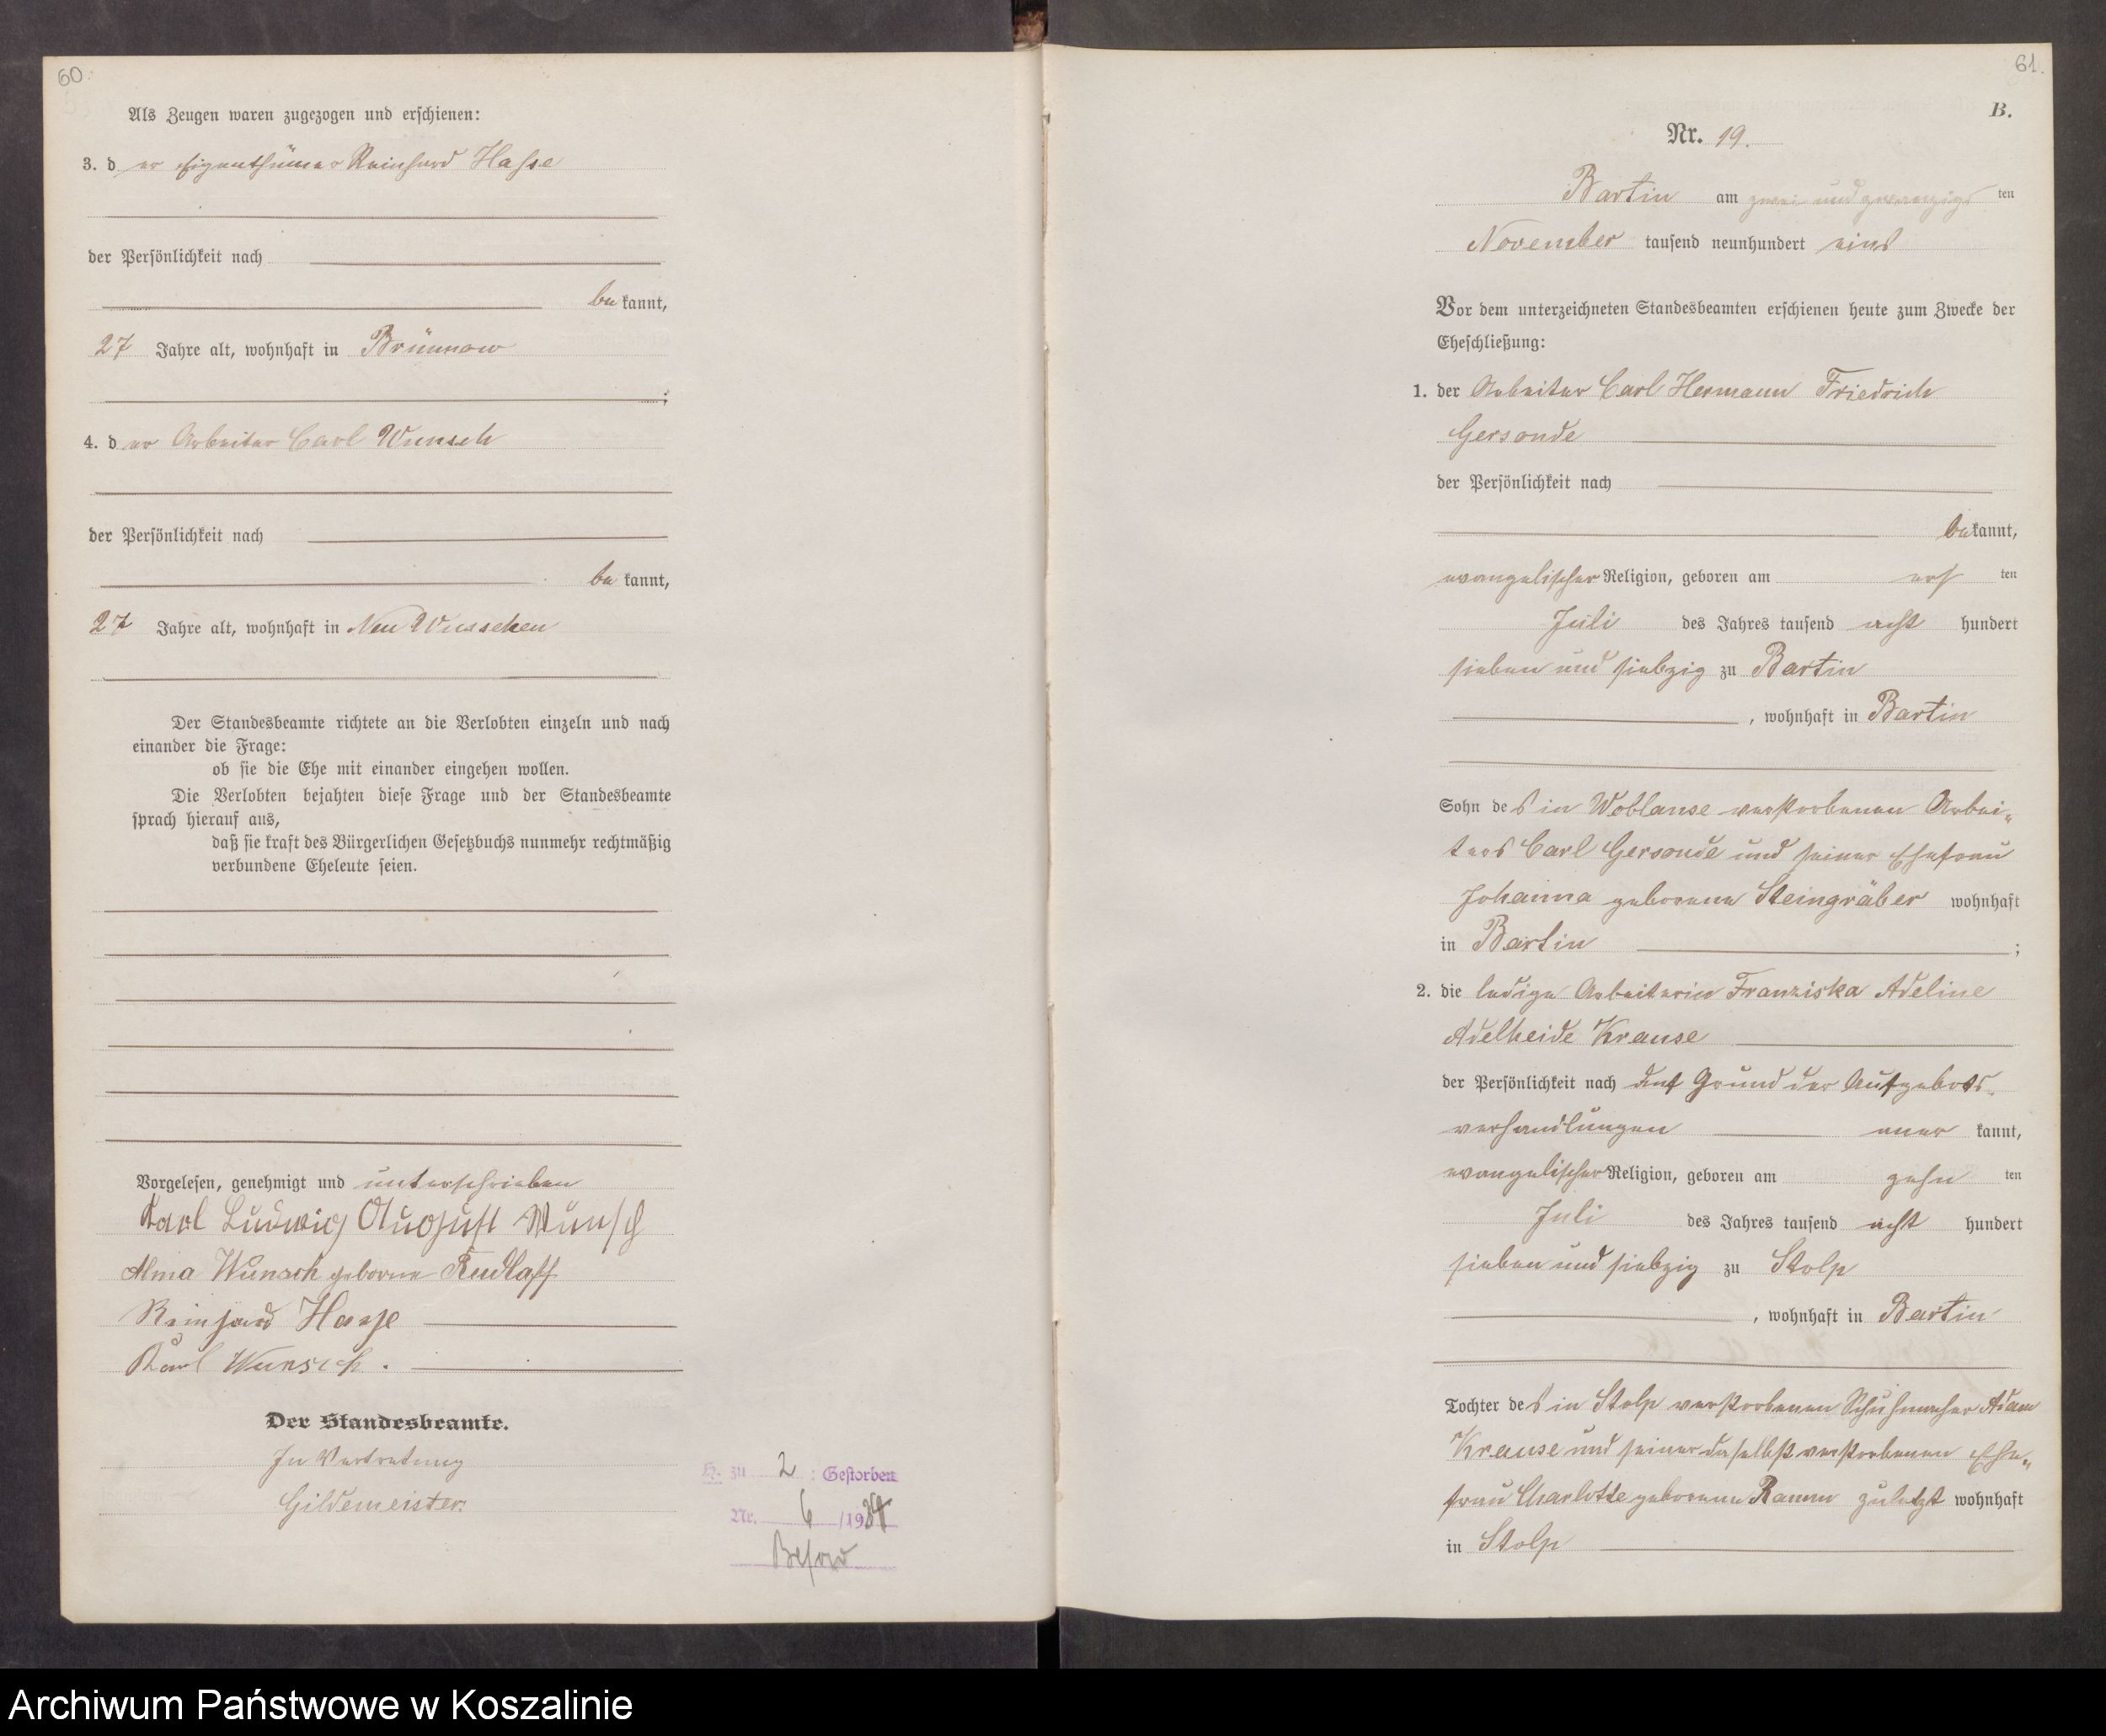 60.
Als Zeugen waren zugezogen und erschienen:
3. der Eigenthümer Reinhard Hasse
der Persönlichkeit nach
bekannt,
27 Jahre alt, wohnhaft in Brünnow
;
4. der Arbeiter Carl Wunsch
der Persönlichkeit nach
bekannt,
27 Jahre alt, wohnhaft in Neu Wusseken
Der Standesbeamte richtete an die Verlobten einzeln und nach
einander die Frage:
ob sie die Ehe mit einander eingehen wollen.
Die Verlobten bejahten diese Frage und der Standesbeamte
sprach hierauf aus,
daß sie kraft des Bürgerlichen Gesetzbuchs nunmehr rechtmäßig
verbundene Eheleute seien.
Vorgelesen, genehmigt und unterschrieben
Karl Ludwig August Wunsch
Alma Wunsch geborne Rudlaff
Reinhard Hasse
Karl Wunsch.
Der Standesbeamte.
In Vertretung
Gildemeister.
H. zu 2 : Gestorben
Nr. 6 /19
61.
B.
Nr. 19.
Bartin am zwei und zwanzigsten
November tausend neunhundert eins
Vor dem unterzeichneten Standesbeamten erschienen heute zum Zwecke der
Eheschließung:
1. der Arbeiter Carl Hermann Friedrich
Gersonde
der Persönlichkeit nach
bekannt,
evangelischer Religion, geboren am ersten
Juli des Jahres tausend acht hundert
sieben und siebzig zu Bartin
, wohnhaft in Bartin
Sohn des in Woblanse verstorbenen Arbei„
ters Carl Gersonde und seiner Ehefrau
Johanna geborene Steingräber wohnhaft
in Bartin ;
2. die ledige Arbeiterin Franziska Adeline
Adelheide Krause
der Persönlichkeit nach auf Grund der Aufgebots„
verhandlungen anerkannt,
evangelischer Religion, geboren am zehnten
Juli des Jahres tausend acht hundert
sieben und siebzig zu Stolp
, wohnhaft in Bartin
Tochter des in Stolp verstorbenen Schuhmacher Adam
Krause und seiner daselbst verstorbenen Ehe„
frau Charlotte geborene Ramm zuletzt wohnhaft
in Stolp
Archiwum Państwowe w Koszalinie